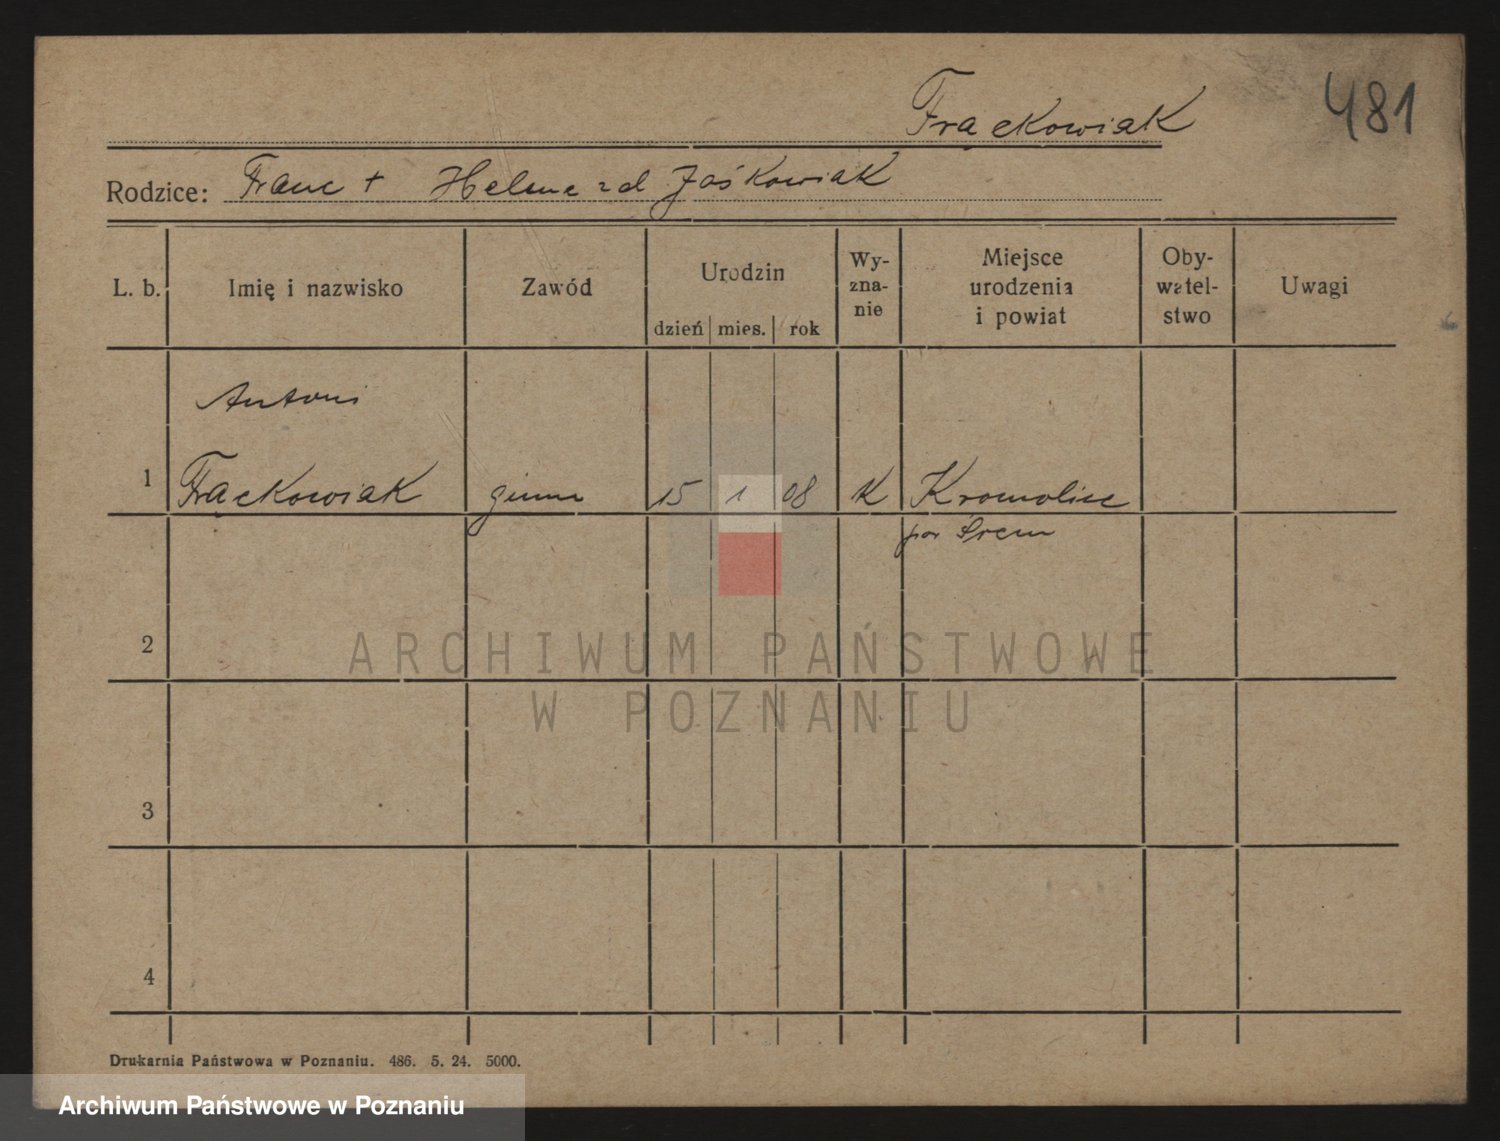 Frąckowiak
481
Rodzice: Franc + Helene zd Jaśkowiak
L. b. Imię i nazwisko Zawód Urodzin Wy-zna-nie Miejsce urodzenia i powiat Oby-watel-stwo Uwagi
dzień mies. rok
Antoni
1 Frąckowiak gimn 15 1 08 K Kromolice
pow Śrem
2
ARCHIWUM PAŃSTWOWE
W POZNANIU
3
4
Drukarnia Państwowa w Poznaniu. 486. 5. 24. 5000.
Archiwum Państwowe w Poznaniu